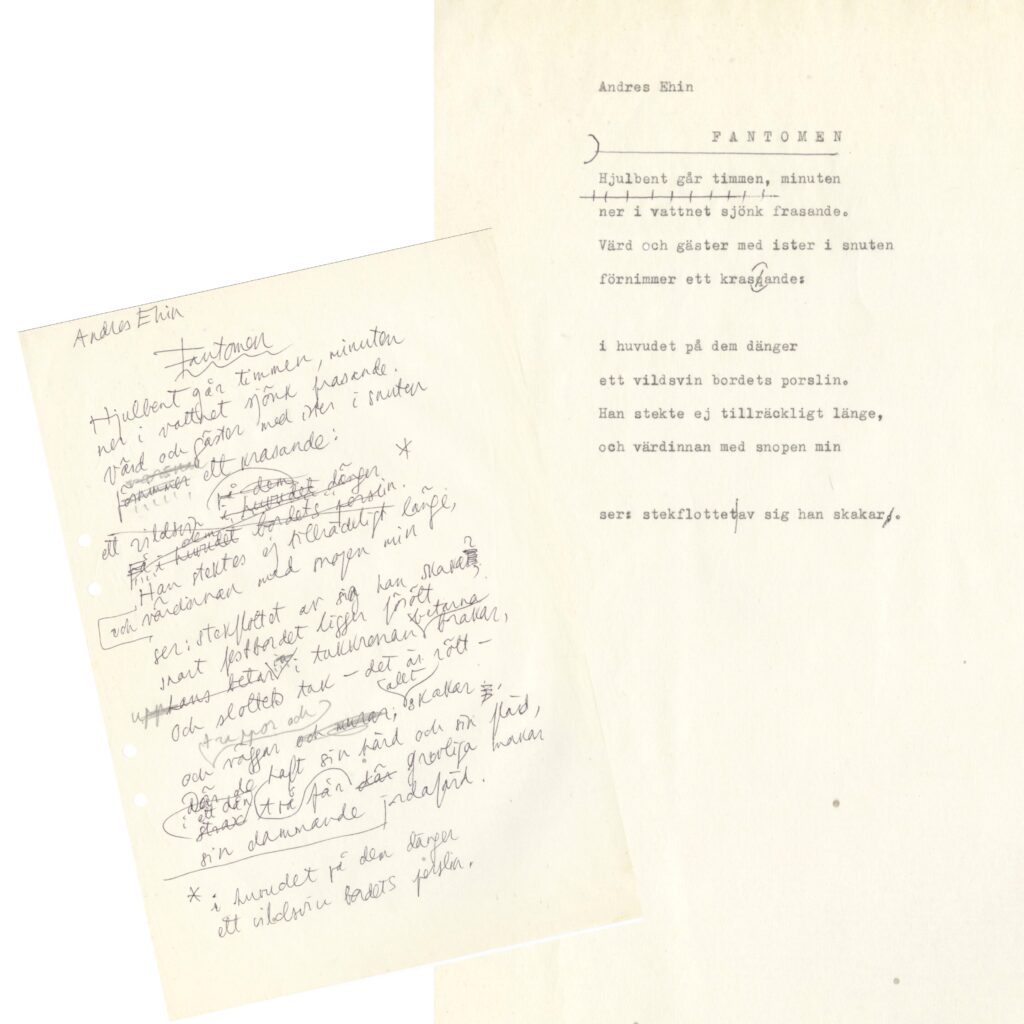 Andres Ehin
Fantomen
Hjulbent går timmen, minuten
ner i vattnet sjönk frasande.
Värd och gäster med ister i snuten
förnimmer ett krasande:
på dem *
ett vildsvin i huvudet dänger
dem
på i huvudet bordets porslin.
Han stektes ej tillräckligt länge,
och värdinnan med snopen min
ser: stekflottet av sig han skakar,
snart festbordet ligger försött
upphans betar i takkronan bitarna brakar,
Och slottets tak – det är rött –
trappor och allt
och väggar och murar, skakar
Där de haft sin härd och sin flärd,
i ett där
strax två får där grovliga makar
sin dammande jordafärd.
* i huvudet på dem dänger
ett vildsvin bordets porslin.
Andres Ehin
FANTOMEN
Hjulbent går timmen, minuten
ner i vattnet sjönk frasande.
Värd och gäster med ister i snuten
förnimmer ett krasande:
i huvudet på dem dänger
ett vildsvin bordets porslin.
Han stekte ej tillräckligt länge,
och värdinnan med snopen min
ser: stekflottet av sig han skakar.